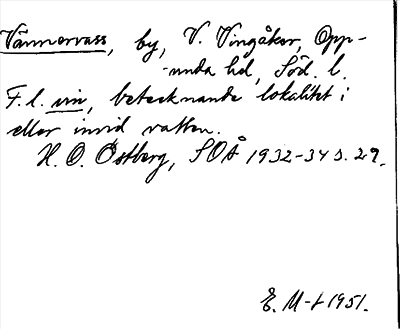 Vännervass, by, V. Vingåker, Opp-
unda hd, Söd. l.
F. l. vin, betecknande lokalitet i
eller invid vatten.
H. O. Östberg, SOÅ 1932-34 s. 29.
E. M-t 1951.